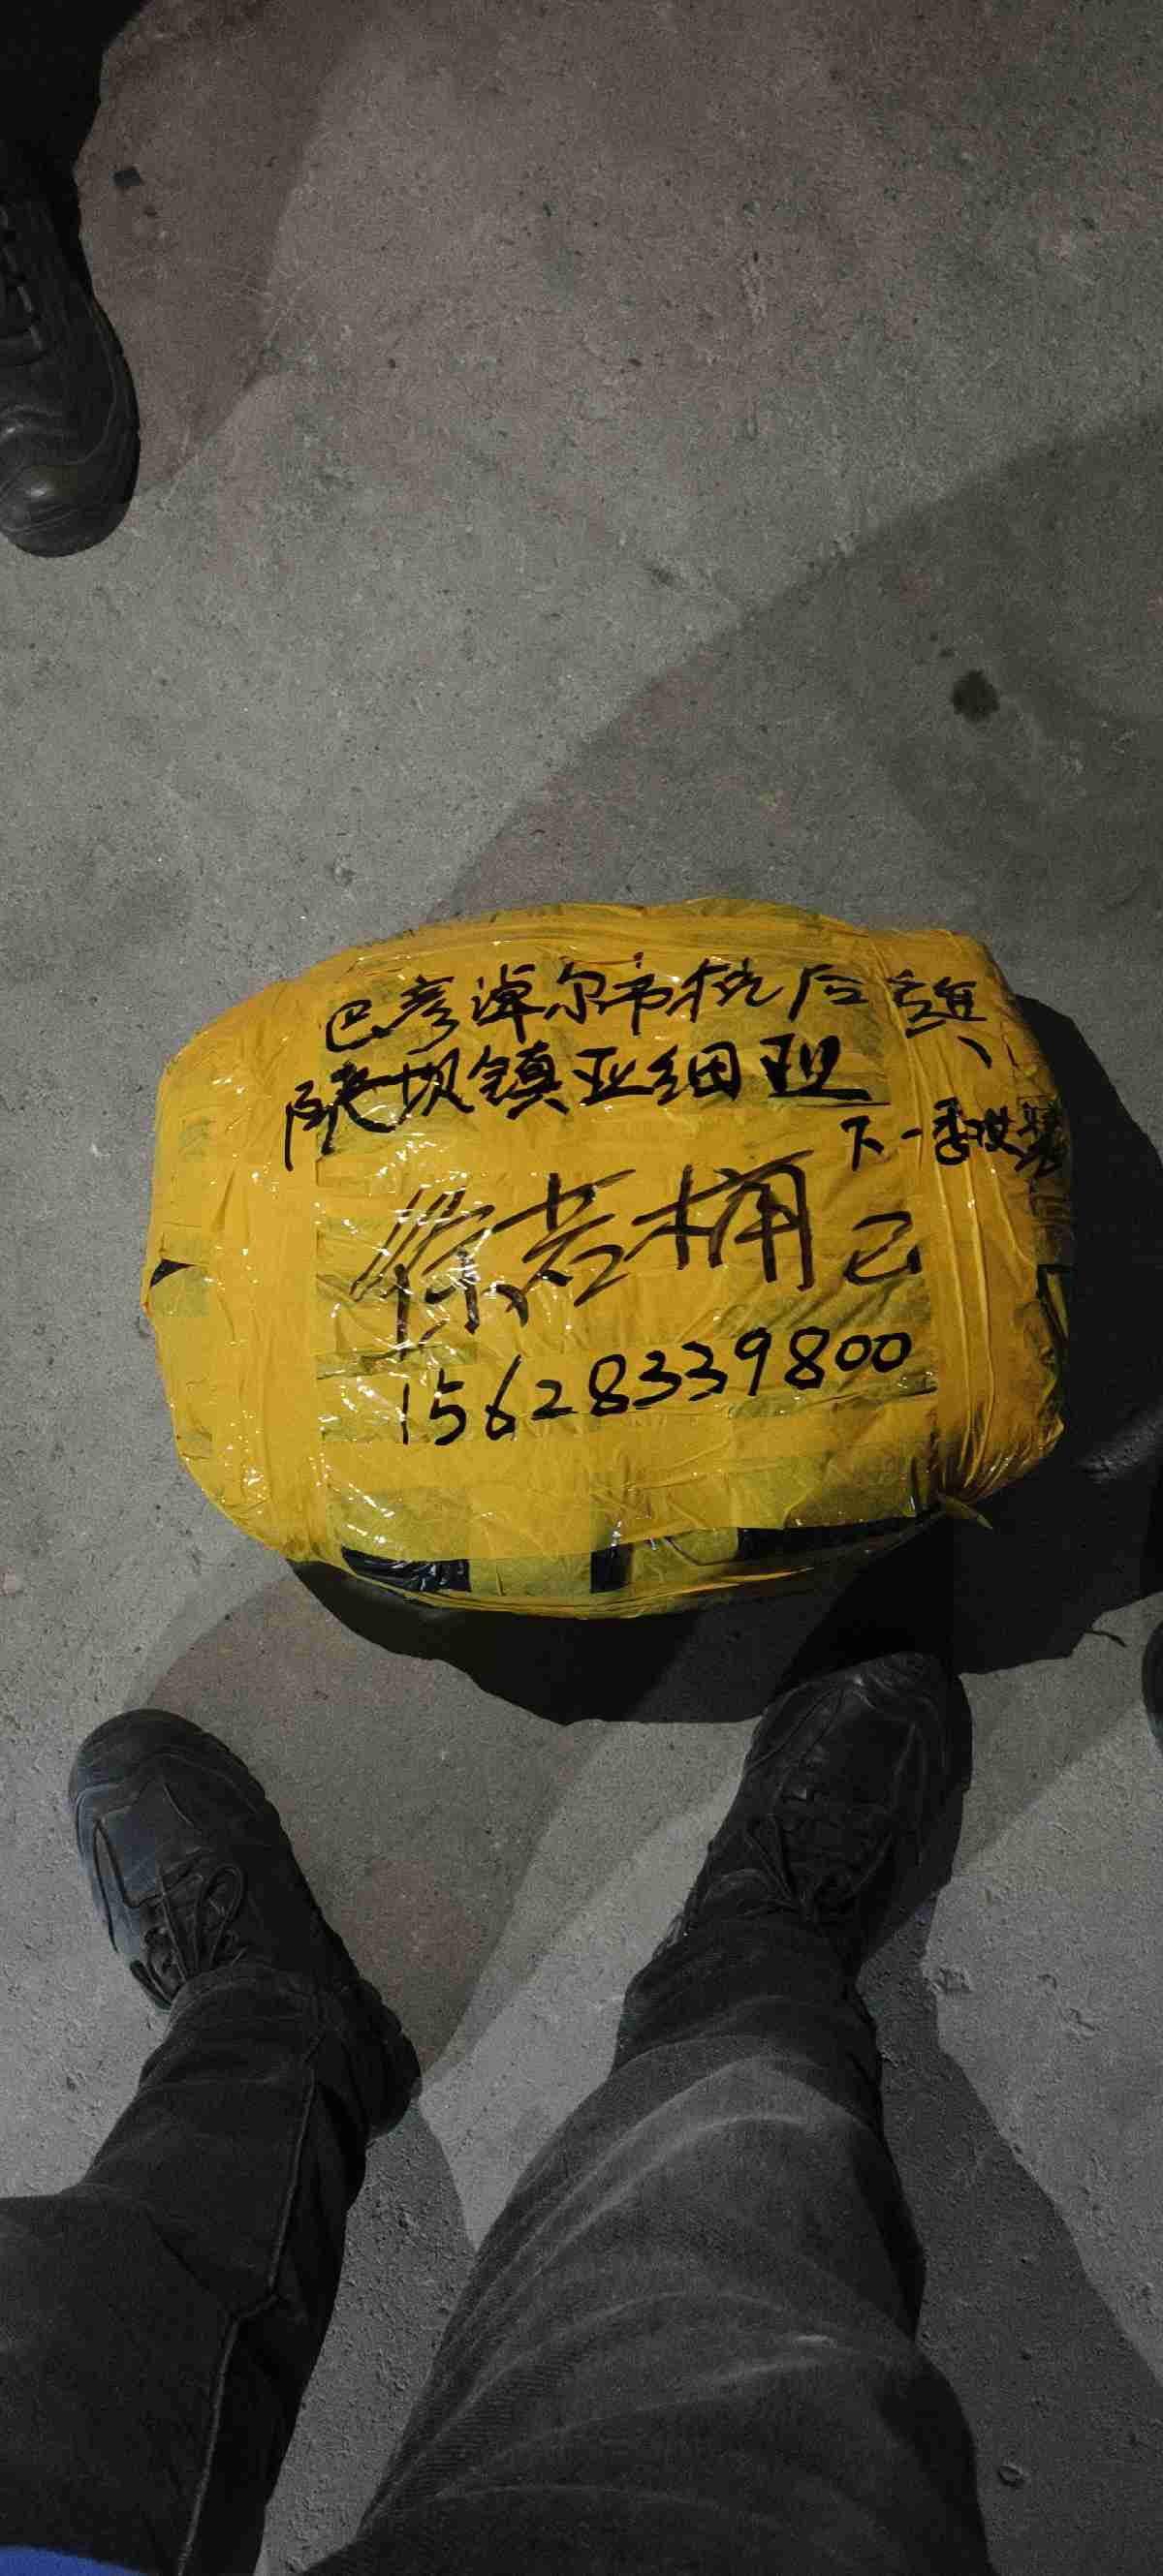 巴彦淖尔市杭后旗
陕坝镇亚细亚
下一季改装
徐若桶 己
15628339800